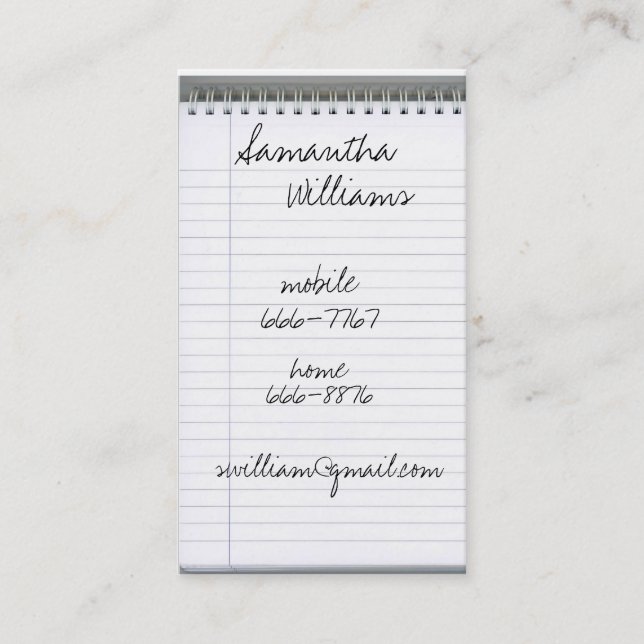 Samantha
Williams
mobile
666-7767
home
666-8876
swilliam@gmail.com